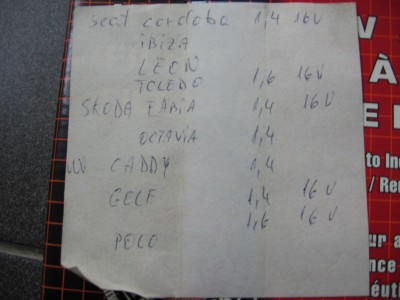 seat cordoba 1,4 16V
iBiZA
LEON
TOLEDO 1,6 16V
SKODA FABIA 1,4 16V
OCTAVIA 1,4
VW CADDY 1,4
GOLF 1,4 16V
1,6 16V
POLO
V
À
E
to In
/ Re
ur a
nce
éuti